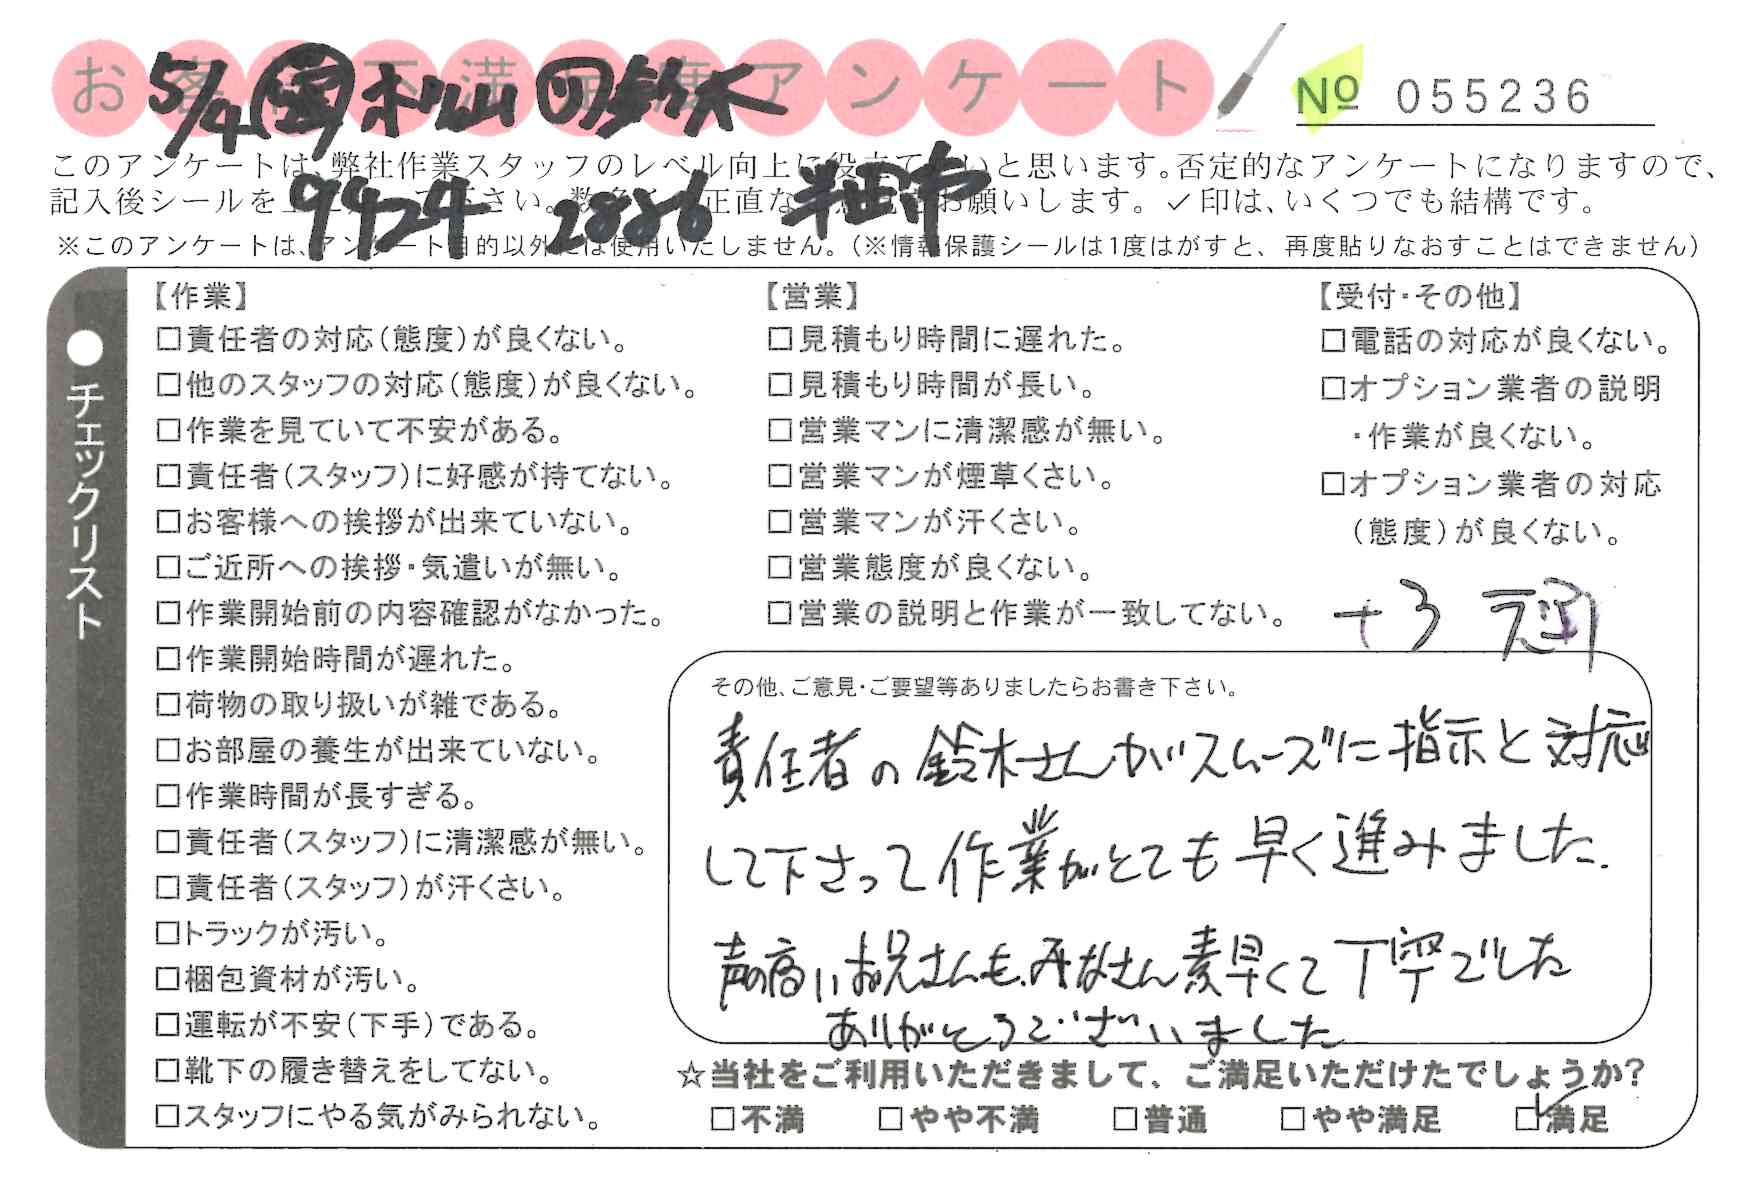 お客様不満足度アンケート
№ 055236
5/4 営 杉山 リ 鈴木
9424 2886 半田市
このアンケートは、弊社作業スタッフのレベル向上に役立てたいと思います。否定的なアンケートになりますので、
記入後シールを 下さい。数多く、正直な お願いします。✓印は、いくつでも結構です。
※このアンケートは、アンケート目的以外には使用いたしません。(※情報保護シールは1度はがすと、再度貼りなおすことはできません)
●チェックリスト
【作業】
□責任者の対応(態度)が良くない。
□他のスタッフの対応(態度)が良くない。
□作業を見ていて不安がある。
□責任者(スタッフ)に好感が持てない。
□お客様への挨拶が出来ていない。
□ご近所への挨拶・気遣いが無い。
□作業開始前の内容確認がなかった。
□作業開始時間が遅れた。
□荷物の取り扱いが雑である。
□お部屋の養生が出来ていない。
□作業時間が長すぎる。
□責任者(スタッフ)に清潔感が無い。
□責任者(スタッフ)が汗くさい。
□トラックが汚い。
□梱包資材が汚い。
□運転が不安(下手)である。
□靴下の履き替えをしてない。
□スタッフにやる気がみられない。
【営業】
□見積もり時間に遅れた。
□見積もり時間が長い。
□営業マンに清潔感が無い。
□営業マンが煙草くさい。
□営業マンが汗くさい。
□営業態度が良くない。
□営業の説明と作業が一致してない。
【受付・その他】
□電話の対応が良くない。
□オプション業者の説明
・作業が良くない。
□オプション業者の対応
(態度)が良くない。
+3
その他、ご意見・ご要望等ありましたらお書き下さい。
責任者の鈴木さんがスムーズに指示と対応
して下さって作業がとても早く進みました.
声の高いお兄さんも、みなさん素早くて丁寧でした
ありがとうございました
☆当社をご利用いただきまして、ご満足いただけたでしょうか?
□不満 □やや不満 □普通 □やや満足 ☑満足